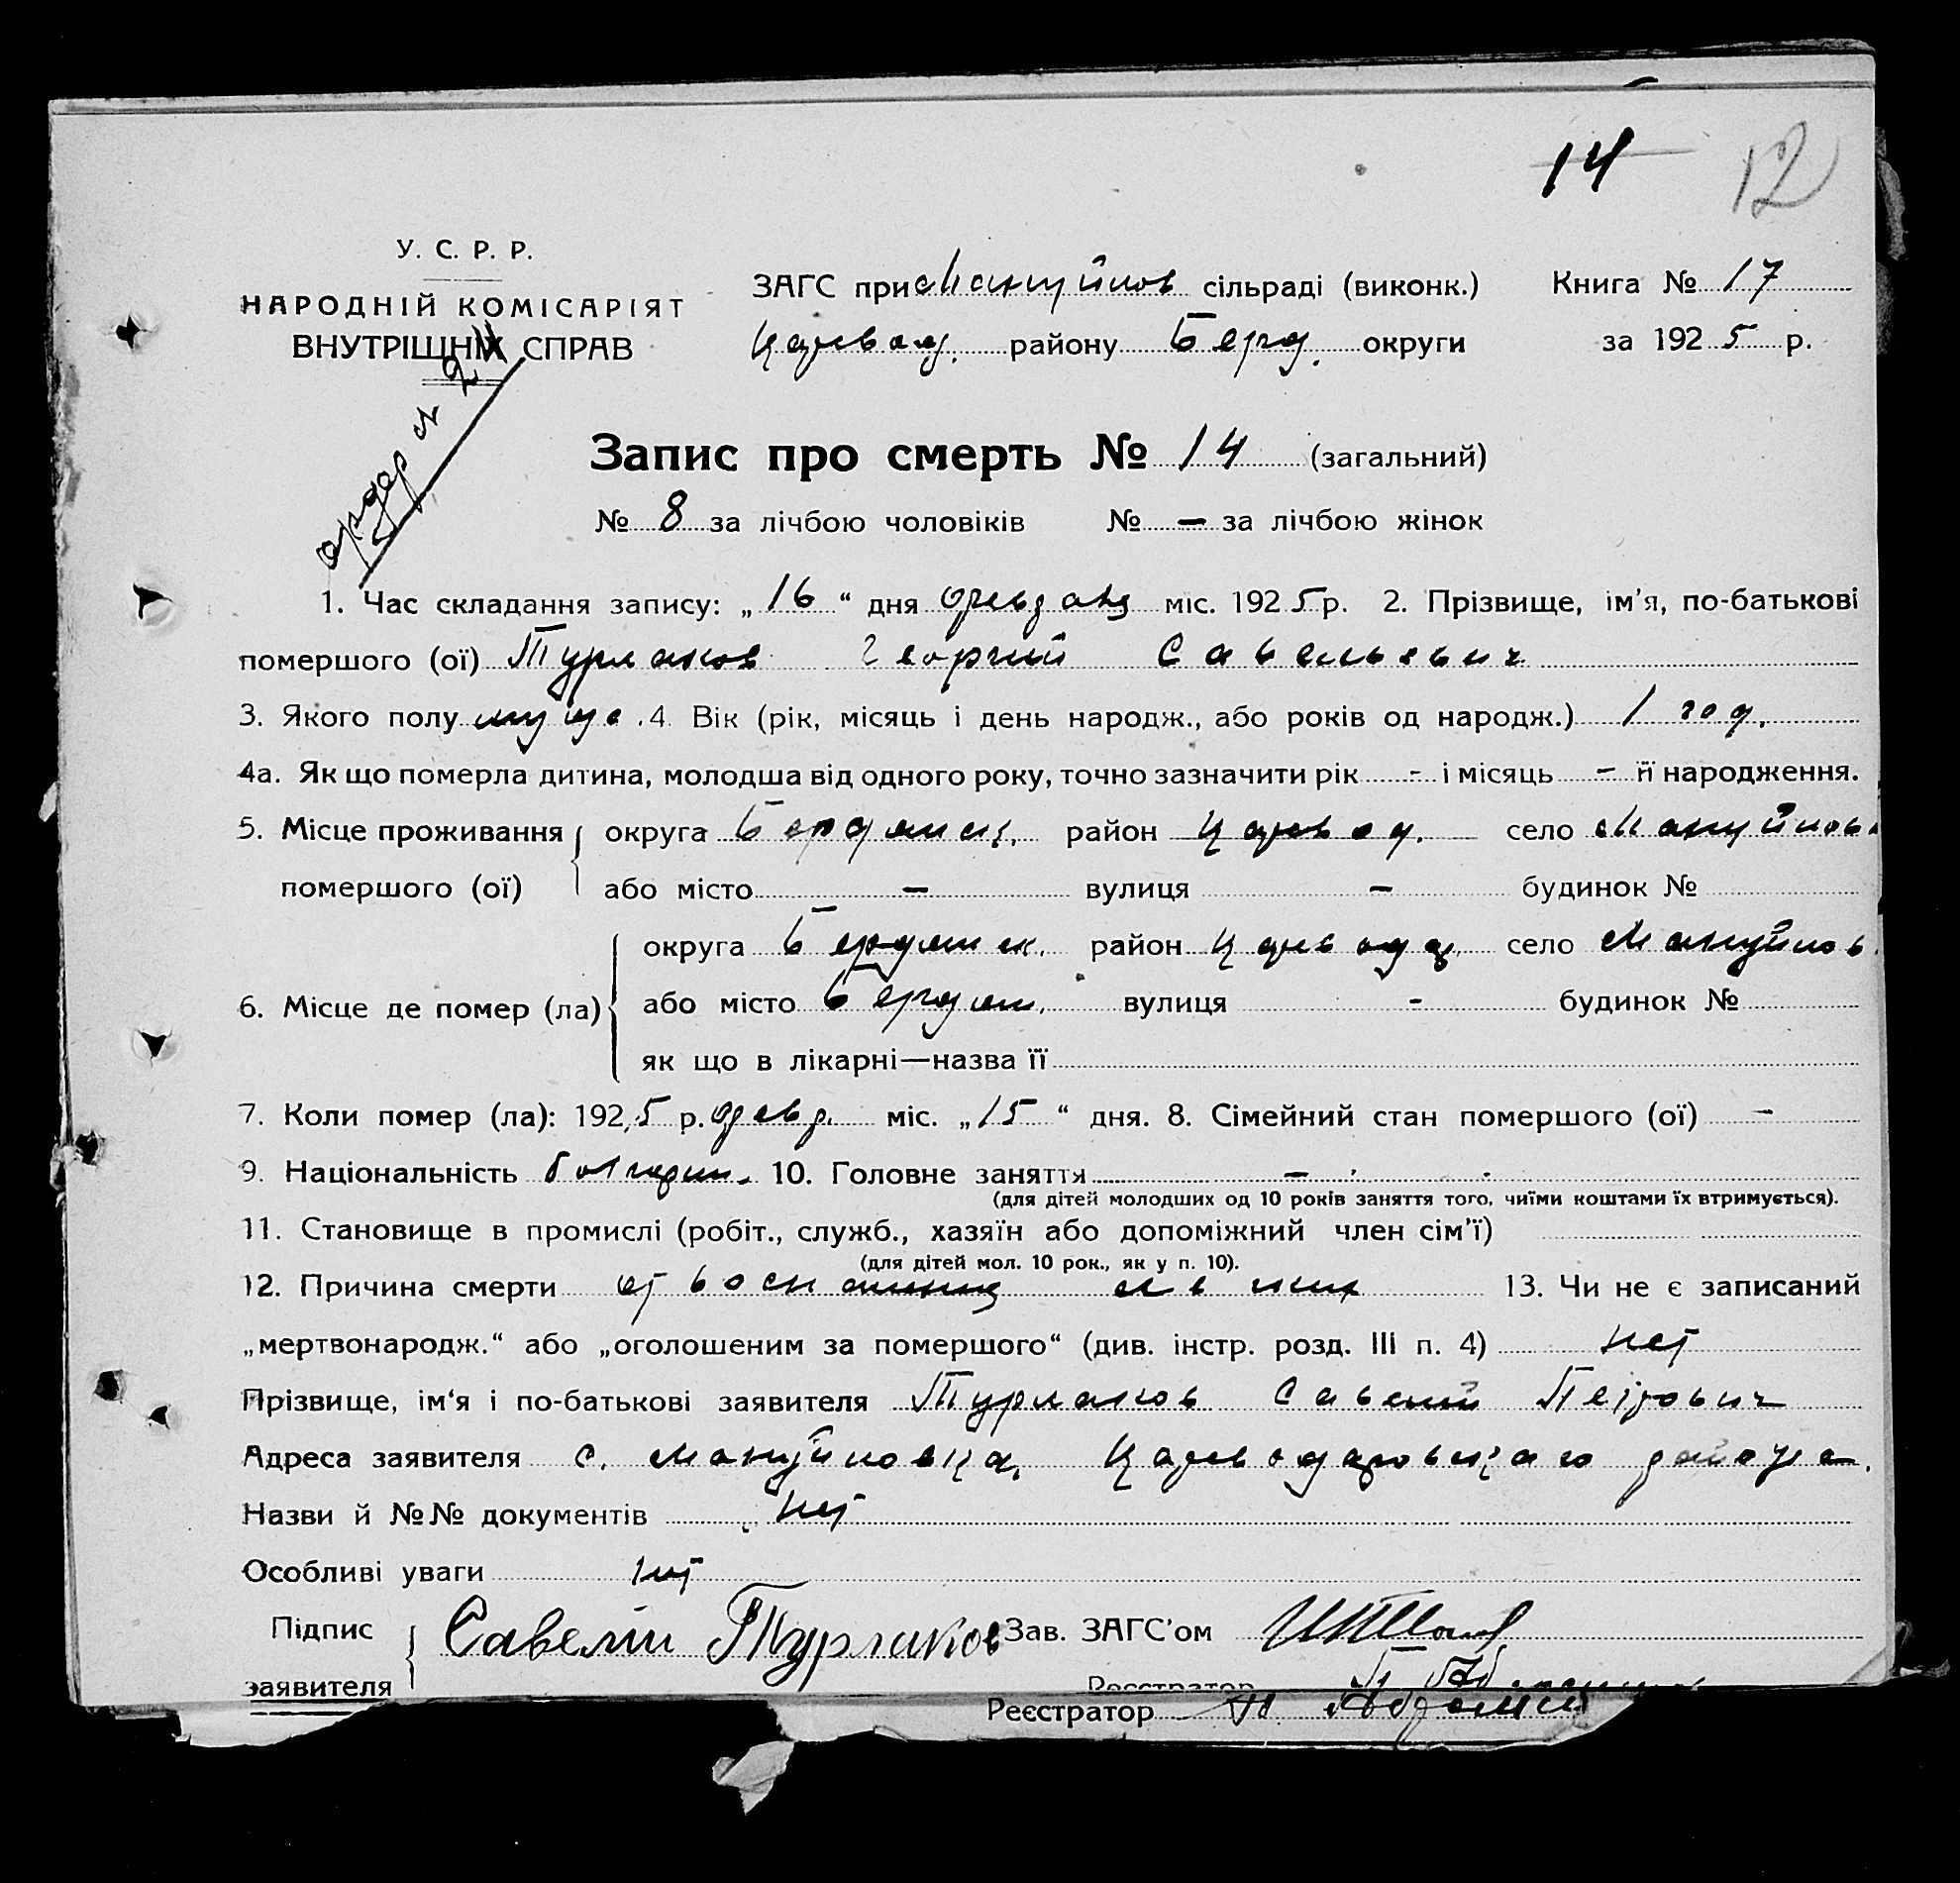 14 12
У. С. Р. Р.
НАРОДНІЙ КОМІСАРІЯТ
ВНУТРІШНІХ СПРАВ
ЗАГС при Мануйлов сільраді (виконк.) Книга № 17
Царевод. району Берд. округи за 1925 р.
ордер № 2
Запис про смерть № 14 (загальний)
№ 8 за лічбою чоловіків № — за лічбою жінок
1. Час складання запису: „16“ дня февраля міс. 1925 р. 2. Прізвище, ім'я, по-батькові
помершого (ої) Турлаков Георгий Савельевич
3. Якого полу муж. 4. Вік (рік, місяць і день народж., або років од народж.) 1 год.
4а. Як що померла дитина, молодша від одного року, точно зазначити рік - і місяць - її народження.
5. Місце проживання округа Бердянск. район Царевод. село Мануйловк
помершого (ої) або місто — вулиця — будинок №
округа Бердянск. район Царевод село Мануйлов.
6. Місце де помер (ла) або місто Бердян. вулиця - будинок №
як що в лікарні—назва її
7. Коли помер (ла): 1925 р. февр. міс. „15“ дня. 8. Сімейний стан помершого (ої) —
9. Національність болгарин. 10. Головне заняття —
(для дітей молодших од 10 років заняття того, чиїми коштами їх втримується).
11. Становище в промислі (робіт., служб., хазяїн або допоміжний член сім'ї)
(для дітей мол. 10 рок., як у п. 10).
12. Причина смерти от воспаления легких 13. Чи не є записаний
„мертвонародж.“ або „оголошеним за помершого“ (див. інстр. розд. III п. 4) нет
Прізвище, ім'я і по-батькові заявителя Турлаков Савелий Петрович
Адреса заявителя с. Мануйловка, Цареводаровского района.
Назви й №№ документів нет
Особливі уваги нет
Підпис Савелий Турлаков Зав. ЗАГС'ом
заявителя Реєстратор
Реєстратор